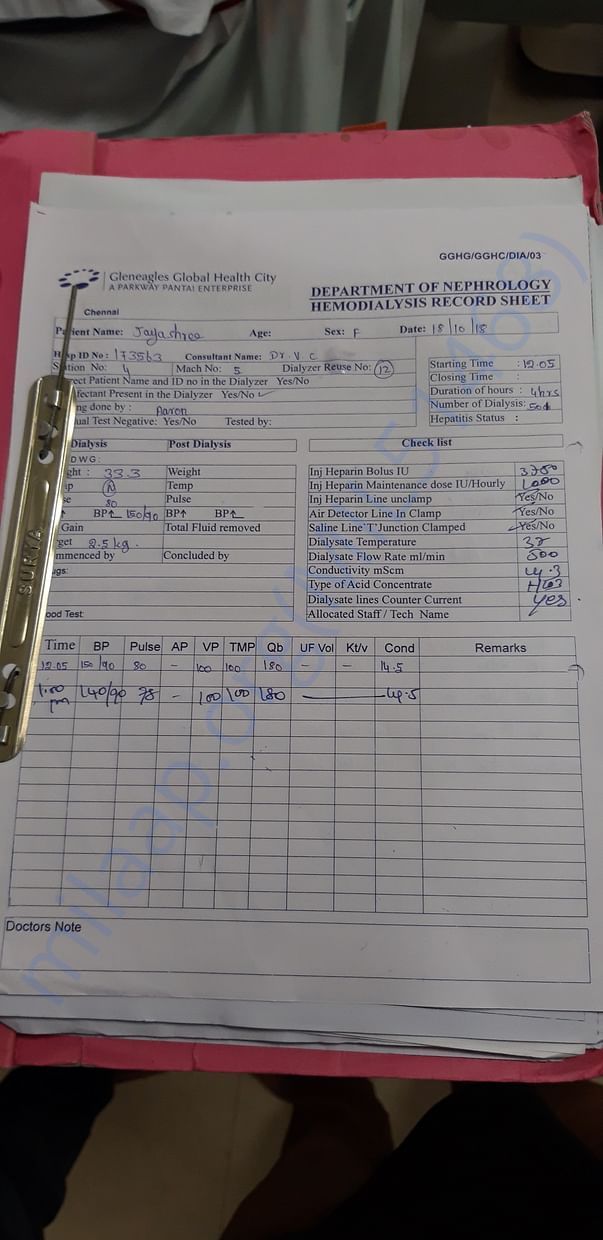 GGHG/GGHC/DIA/03
Gleneagles Global Health City
A PARKWAY PANTAI ENTERPRISE
Chennai
DEPARTMENT OF NEPHROLOGY
HEMODIALYSIS RECORD SHEET
Patient Name: Jayashree Age: Sex: F Date: 18/10/18
Hosp ID No: 173563 Consultant Name: Dr. V C
Station No: 4 Mach No: 5 Dialyzer Reuse No: 12
ect Patient Name and ID no in the Dialyzer Yes/No
fectant Present in the Dialyzer Yes/No ✓
ng done by : Aaron
ual Test Negative: Yes/No Tested by:
Starting Time : 12.05
Closing Time :
Duration of hours : 4hrs
Number of Dialysis:
Hepatitis Status :
Dialysis Post Dialysis
DWG:
ght : 33.3 Weight
p N Temp
se 80 Pulse
BP↑ 150/90 BP↑ BP↑
Gain Total Fluid removed
get 2.5 kg.
mmenced by Concluded by
gs:
ood Test:
Check list
Inj Heparin Bolus IU
Inj Heparin Maintenance dose IU/Hourly 1000
Inj Heparin Line unclamp Yes/No
Air Detector Line In Clamp Yes/No
Saline Line`T'Junction Clamped Yes/No
Dialysate Temperature 37
Dialysate Flow Rate ml/min 500
Conductivity mScm 14.3
Type of Acid Concentrate
Dialysate lines Counter Current Yes
Allocated Staff / Tech Name
Time BP Pulse AP VP TMP Qb UF Vol Kt/v Cond Remarks
12.05 150/90 80 - 100 100 180 - - 14.5
1.00 pm 140/90 78 - 100 100 180 14.5
Doctors Note
SURYA
milaap.org